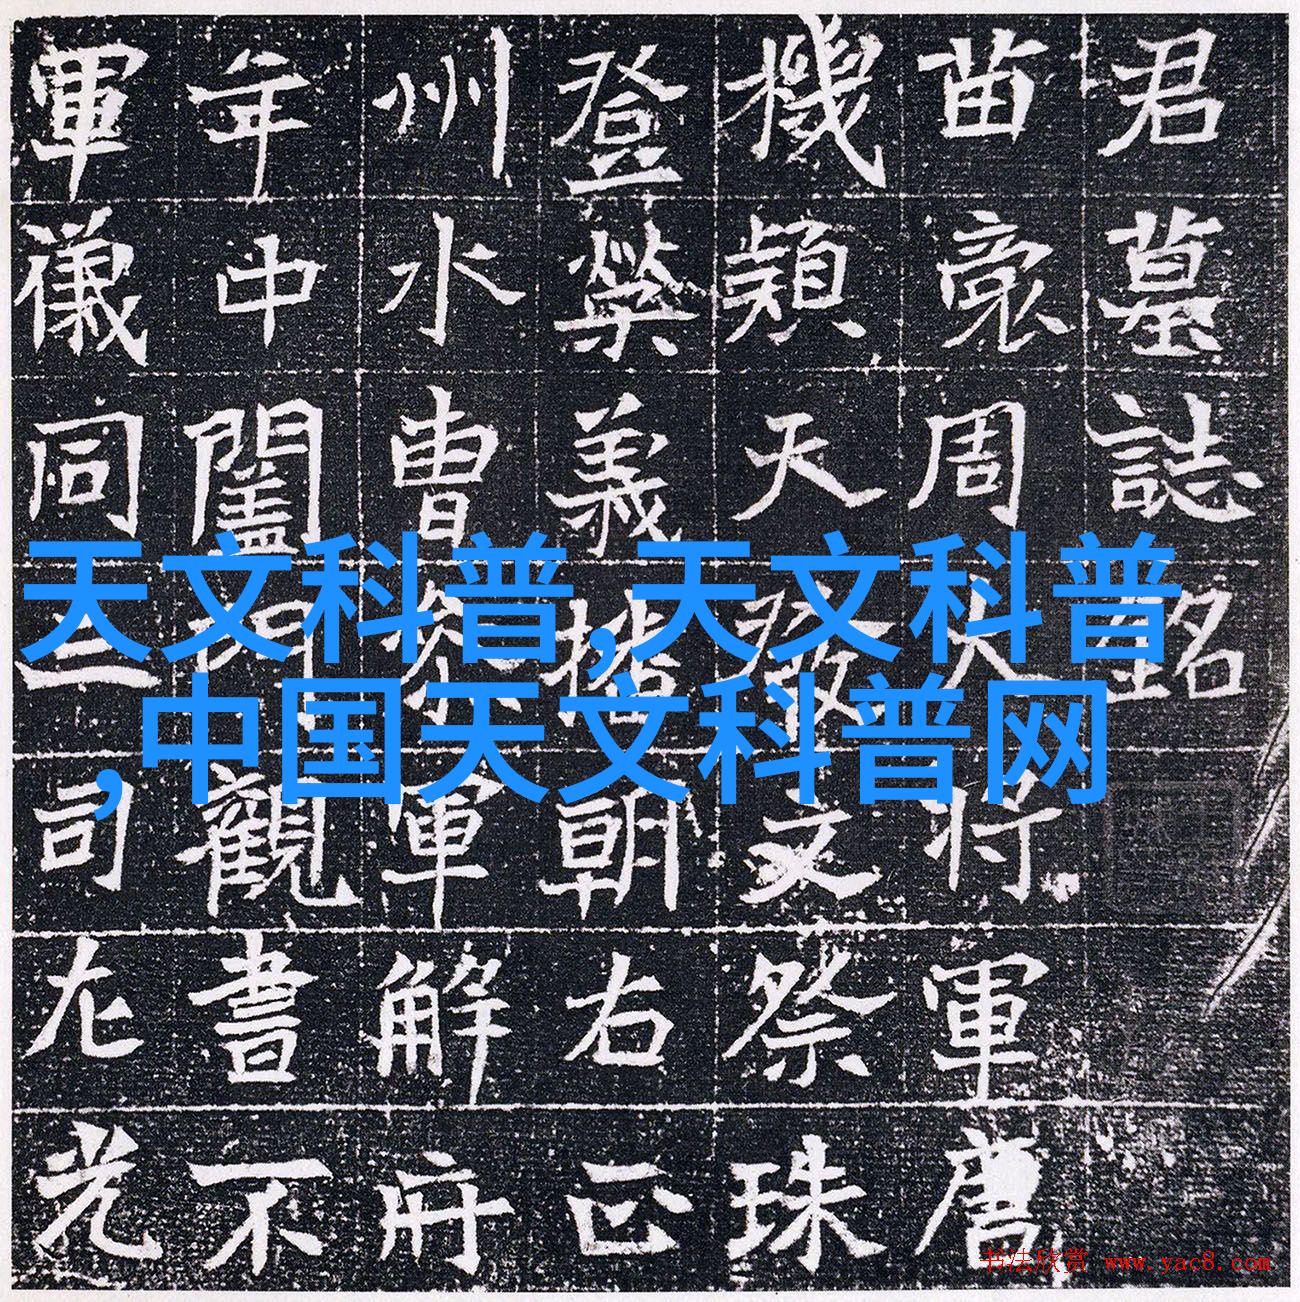 君墓誌銘
苗裔周大将軍
機穎天發文祭珠
登榮義朝右正
州水曹參軍解
年中闔門觀書不
軍儀同三司左光
天文科普,天文科普
,中国天文科普网
书法欣赏 www.yac8.com